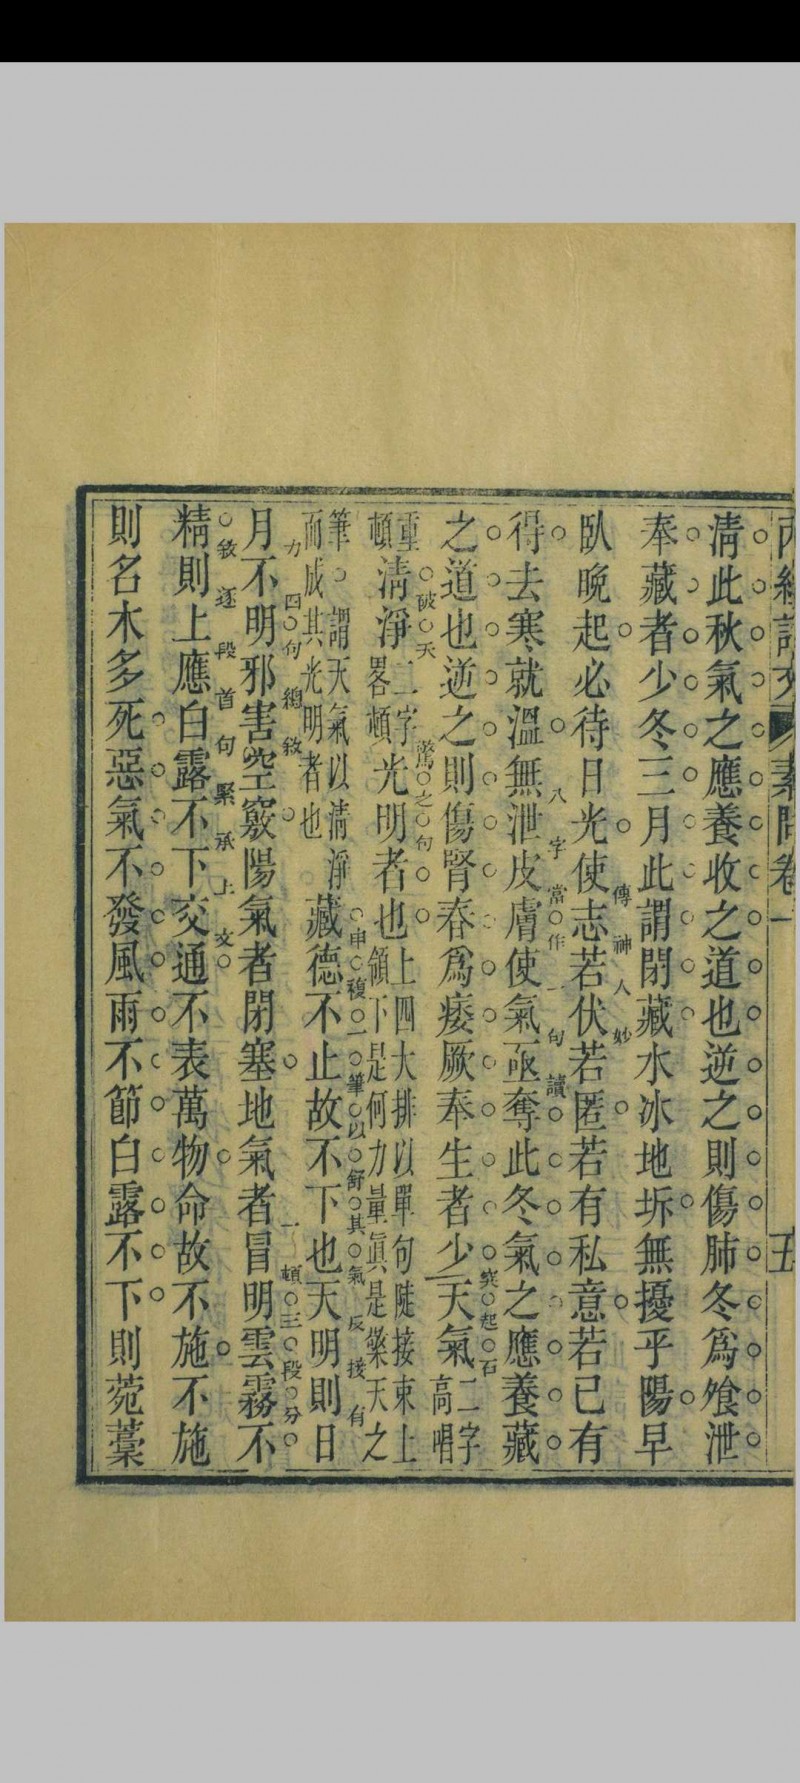 內經評文 素問卷一 五
清此秋氣之應養收之道也逆之則傷肺冬爲飧泄
奉藏者少冬三月此謂閉藏水冰地坼無擾乎陽早
臥晚起必待日光使志若伏若匿若有私意若已有
傳神人妙
得去寒就溫無泄皮膚使氣亟奪此冬氣之應養藏
八字當作一句讀
之道也逆之則傷腎春爲痿厥奉生者少天氣二字高唱
突起石破天驚之句
重頓清淨二字畧頓光明者也上四大排以單句陡接束上領下是何力量眞是樂天之
筆謂天氣以清淨而成其光明者也藏德不止故不下也天明則日
申複一筆以舒其氣反接有力
月不明邪害空竅陽氣者閉塞地氣者冒明雲霧不
四句總敘一頓三段分敘逐段首句緊承上文
精則上應白露不下交通不表萬物命故不施不施
則名木多死惡氣不發風雨不節白露不下則菀藁